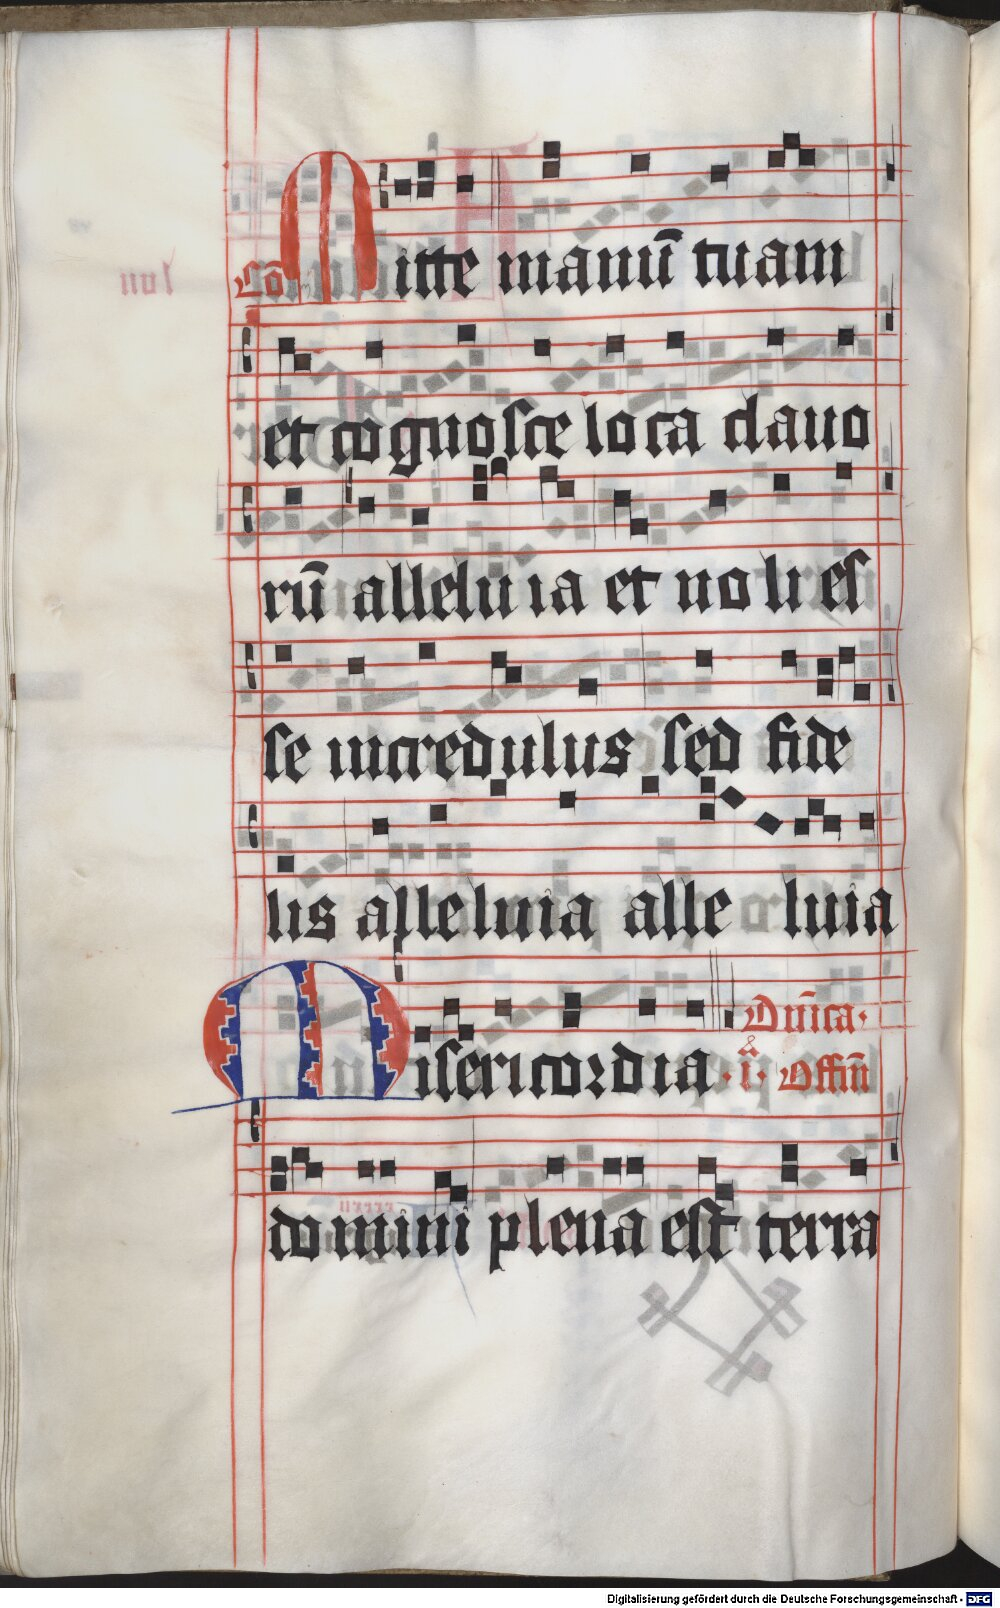 Cō Mitte manū tuam
et cognosce loca clauo
rū alleluia et noli es
se incredulus sed fide
lis alleluia alleluia
Misericordia · Dn̄ica · ii · Offm̄
domini plena est terra
Digitalisierung gefördert durch die Deutsche Forschungsgemeinschaft - DFG